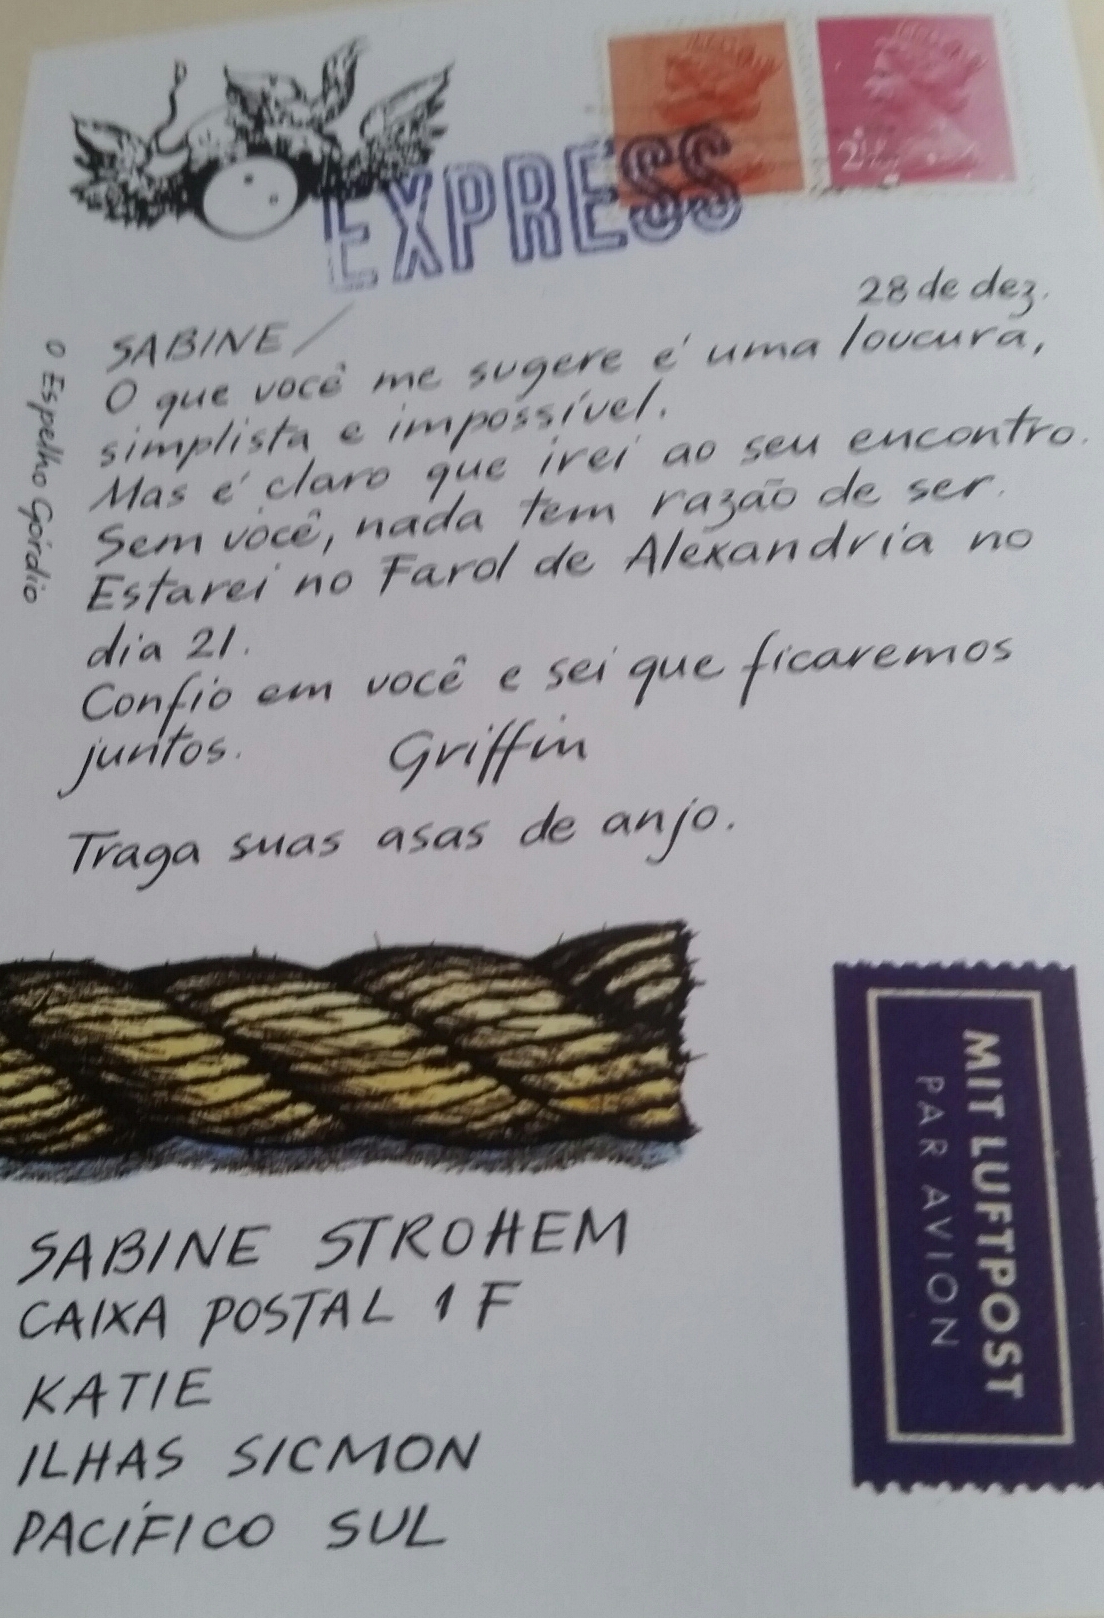 EXPRESS
28 de dez.
SABINE/
O que você me sugere é uma loucura,
simplista e impossível.
Mas é claro que irei ao seu encontro.
Sem você, nada tem razão de ser.
Estarei no Farol de Alexandria no
dia 21.
Confio em você e sei que ficaremos
juntos. Griffin
Traga suas asas de anjo.
O Espelho Górdio
MIT LUFTPOST
PAR AVION
SABINE STROHEM
CAIXA POSTAL 1 F
KATIE
ILHAS SICMON
PACÍFICO SUL